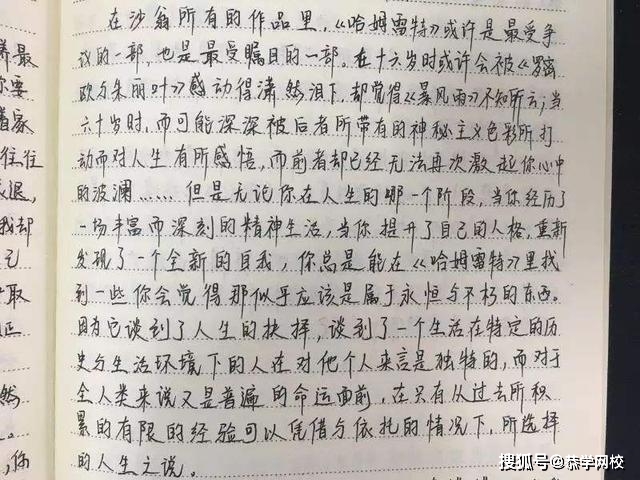 在沙翁所有的作品里，《哈姆雷特》或许是最受争
议的一部，也是最受瞩目的一部。在十六岁时或许会被《罗密
欧与朱丽叶》感动得潸然泪下，却觉得《暴风雨》不知所云；当
六十岁时，而可能深深被后者所带有的神秘主义色彩所打
动而对人生有所感悟，而前者却已经无法再次激起你心中
的波澜……但是无论你在人生的哪一个阶段，当你经历了
一场丰富而深刻的精神生活，当你提升了自己的人格，重新
发现了一个全新的自我，你总是能在《哈姆雷特》里找
到一些你会觉得那似乎应该是属于永恒与不朽的东西。
因为它谈到了人生的抉择，谈到了一个生活在特定的历
史与生活环境下的人在对他个人来言是独特的，而对于
全人类来说又是普遍的命运面前，在只有从过去所积
累的有限的经验可以凭借与依托的情况下，所选择
的人生之说。
养最
你要
着家
往往
退，
我却
取
然
，你
搜狐号@恭学网校